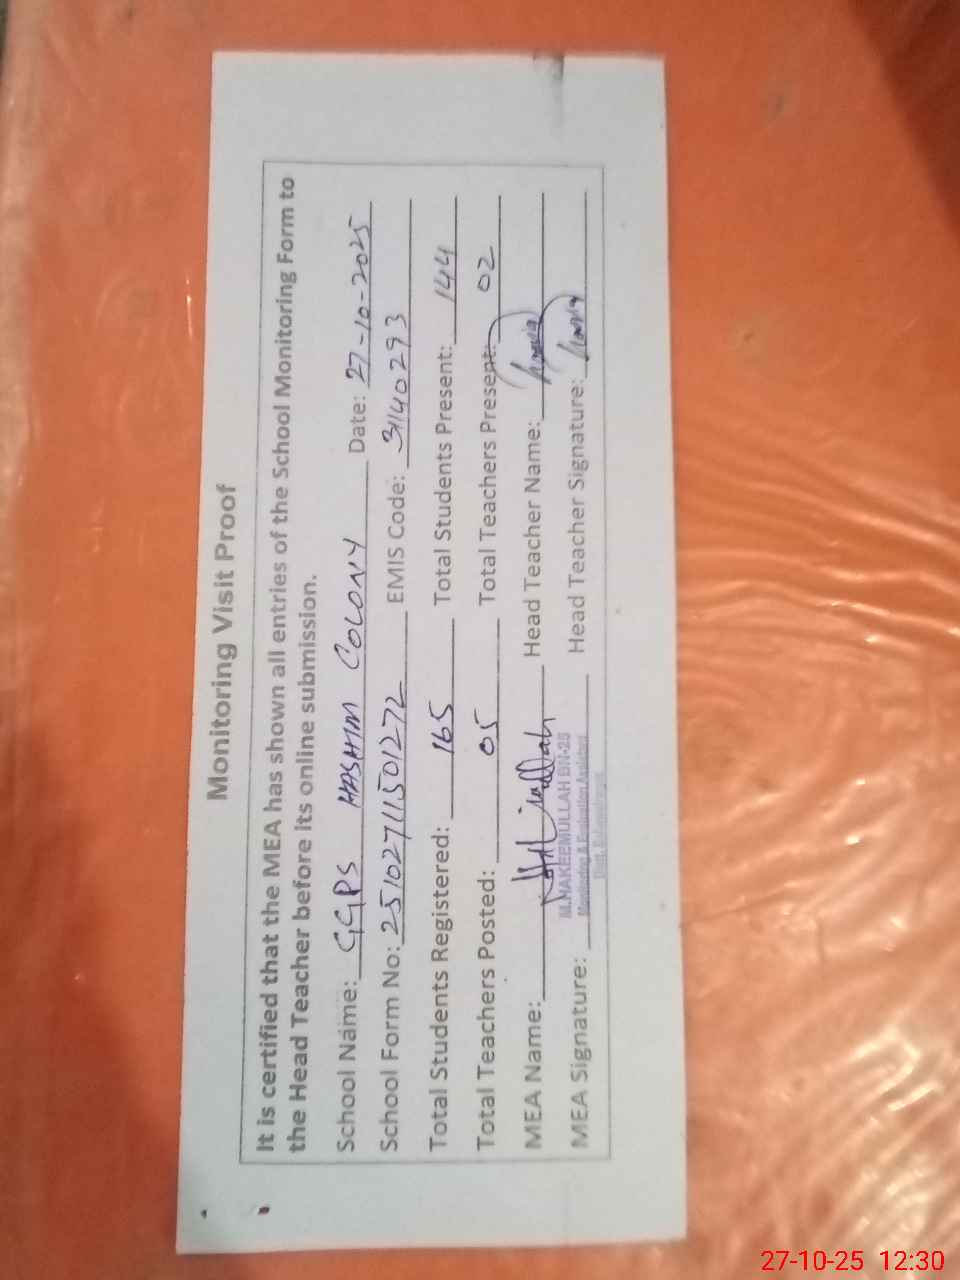 Monitoring Visit Proof
It is certified that the MEA has shown all entries of the School Monitoring Form to
the Head Teacher before its online submission.
School Name: GGPS HASHIM COLONY Date: 27-10-2025
School Form No: 25102711501272 EMIS Code: 31140293
Total Students Registered: 165 Total Students Present: 144
Total Teachers Posted: 05 Total Teachers Present: 02
MEA Name: Head Teacher Name:
M.HAKEEMULLAH BN-25
MEA Signature: Monitoring & Evaluation Assistant Head Teacher Signature:
27-10-25 12:30